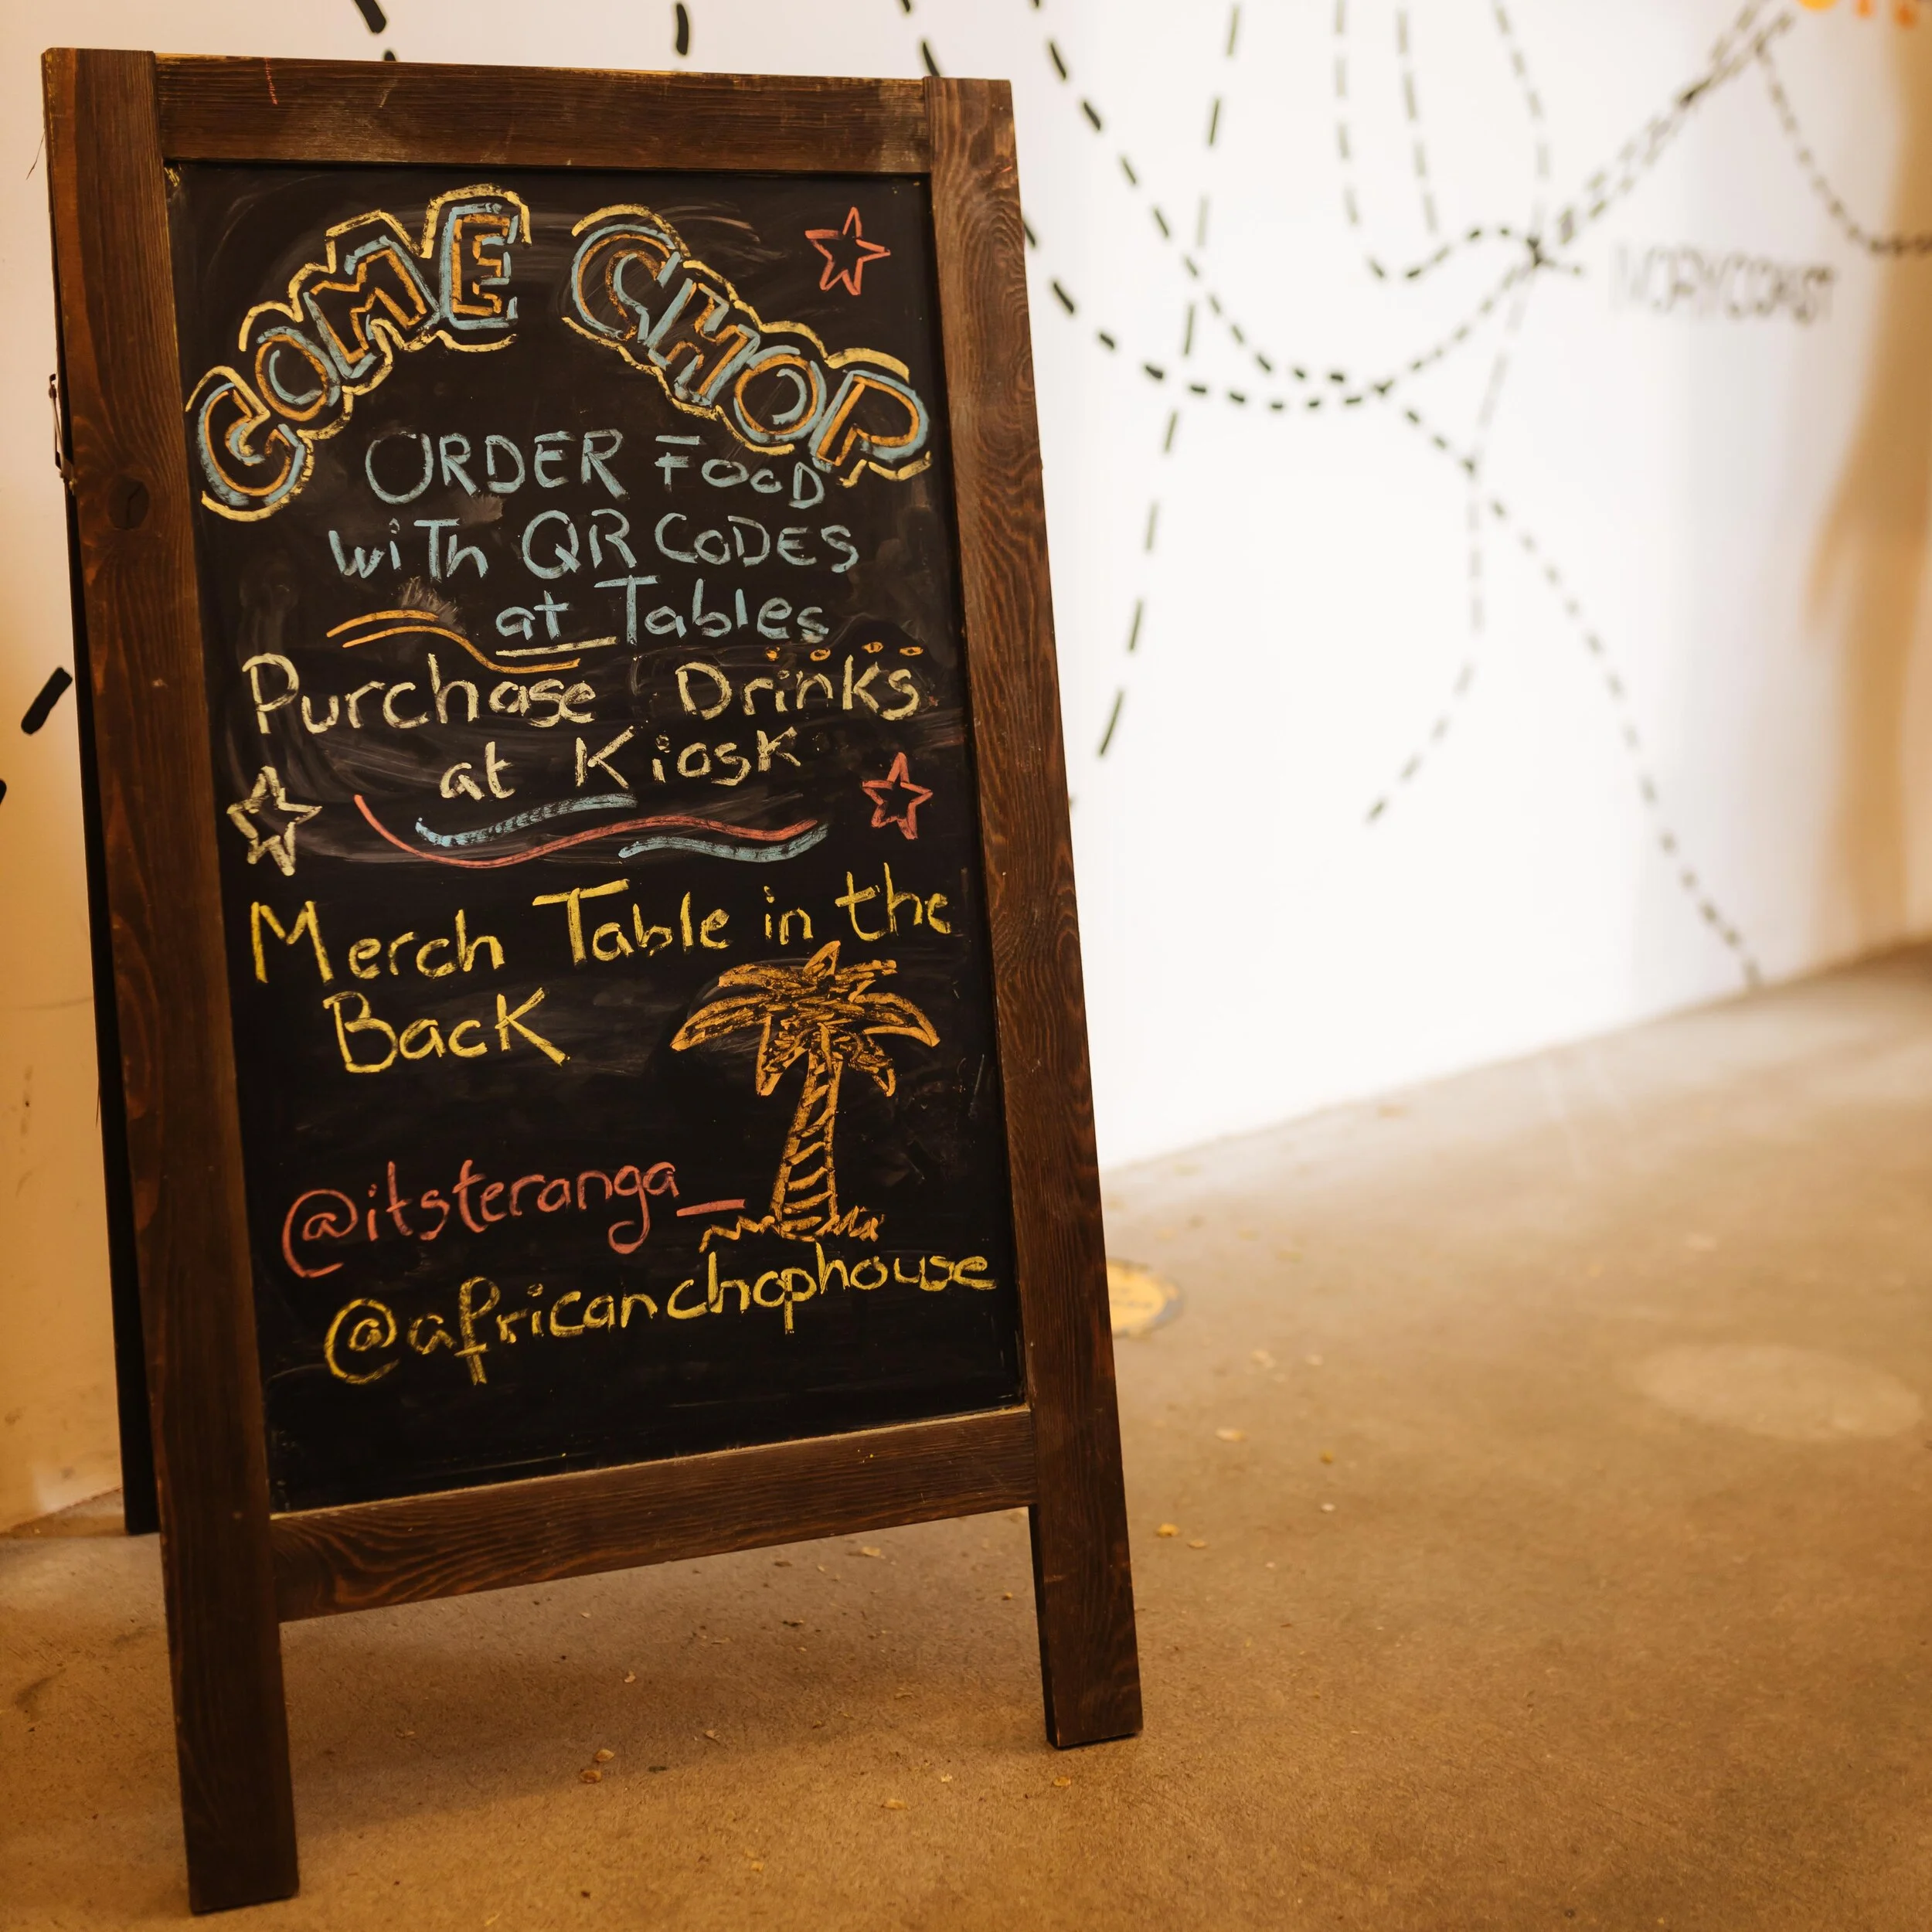 COME CHOP
ORDER FOOD
wiTh QR CODES
at Tables
Purchase Drinks
at Kiosk
Merch Table in the
Back
@itsteranga_
@africanchophouse
IVORY COAST